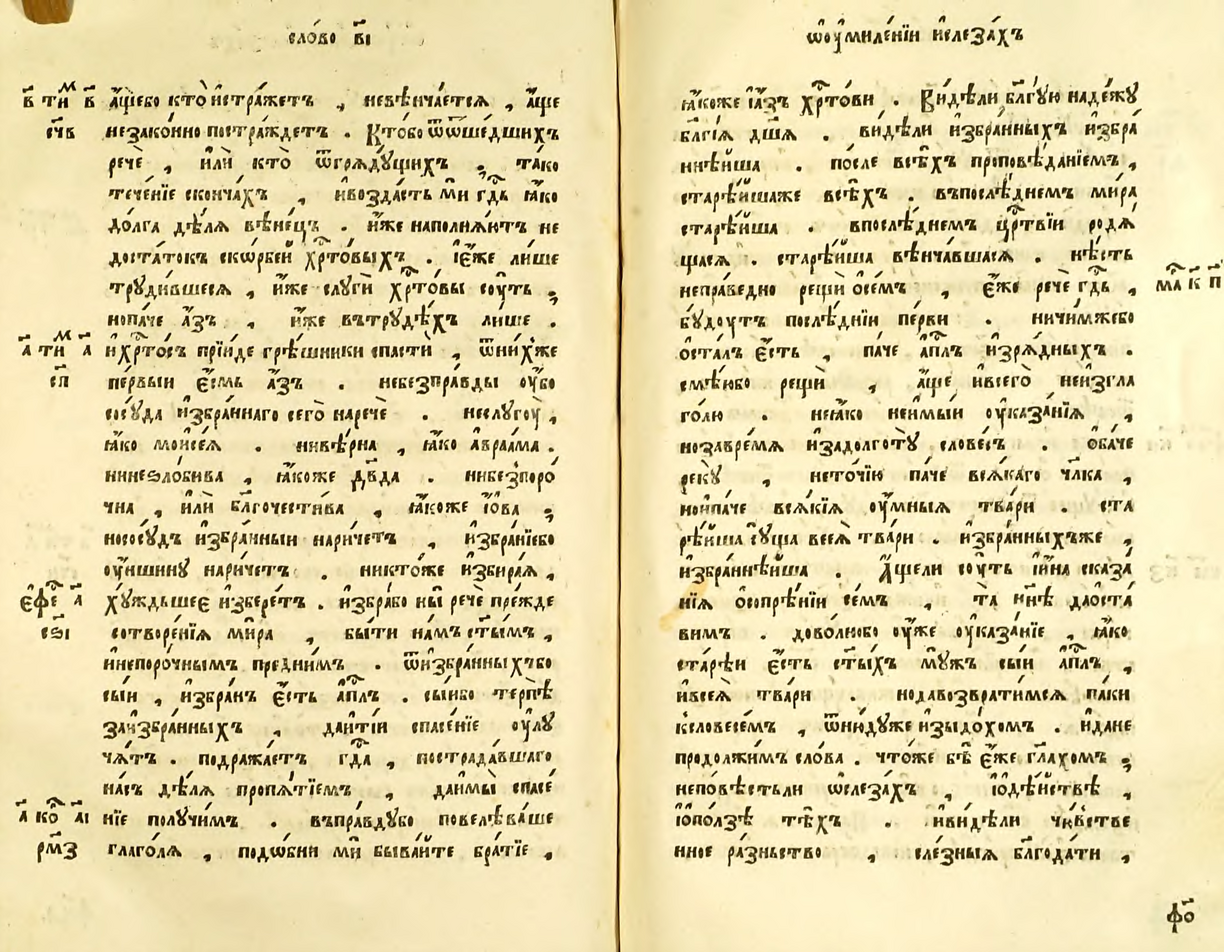 сло́во в҃і
в҃ тим в҃ а҆́щебо кто̀ и҆стра́жетъ , невѣнча́етсѧ , а҆́ще
сч҃в неꙁако́нно постра́ждетъ . Кто́бо ѿѿше́дшихъ
речѐ , и҆лѝ кто̀ ѿгрѧдꙋ́щихъ , та́ко
тече́нїе сконча́хъ , и҆воꙁда́сть мѝ гдⷭ҇ь ꙗ҆́ко
до́лга дѣ́лѧ вѣне́цъ . и҆́же наполнѧ́итъ не
доста́токъ ско́рбей хрⷭ҇то́выхъ . і҆є҆́же ли́ше
трꙋди́вшесѧ , и҆́же слꙋгѝ хрⷭ҇то́вы сꙋ́ть ,
нопа́че а҆́ꙁъ , и҆́же вътрꙋдѣ́хъ ли́ше .
а҃ тим а҃ и҆хрⷭ҇то́съ прїи́де грѣ́шники спастѝ , ѿни́хже
сп҃ пе́рвыи є҆́смь а҆́ꙁъ . небеꙁпра́вды ᲂу҆́бо
сосꙋ́да и҆ꙁбра́ннаго сего̀ наречѐ . неслꙋго́ю ,
ꙗ҆́ко мои҆се́ѧ . нивѣ́рна , ꙗ҆́ко а҆враа́ма .
нинеѕло́бива , ꙗ҆́коже дв҃да . нибеꙁпоро́
чна , и҆лѝ бл҃гочести́ва , ꙗ҆́коже і҆́ова ,
нососꙋ́дъ и҆ꙁбра́нныи нарича́етъ , и҆ꙁбра́нїебо
ᲂу҆́ншинꙋ нарича́етъ . никто́же и҆ꙁбира́ѧ ,
є҆фе҇ а҃ хꙋ́ждьшеє и҆ꙁбере́тъ . и҆ꙁбра́бо ны̀ речѐ пре́жде
сѕ҃і сотворе́нїѧ ми́ра , бы́ти на́мъ ст҃ы́мъ ,
и҆непоро́чнымъ предни́мъ . ѿи҆ꙁбра́нныхъбо
сы́и , и҆ꙁбра́нъ є҆́сть а҆пⷭ҇лъ . сы́ибо терпѣ̀
ꙁаи҆ꙁбра́нныхъ , даи҆ті́и спасе́нїе ᲂу҆лꙋ
ча́тъ . подража́етъ гдⷭ҇а , пострада́вшаго
на́съ дѣ́лѧ пропѧ́тїемъ , дамы̀ спасе́
а҃ ко҇ а҃і нїе полꙋ́чимъ . въпра́вдꙋбо повелѣва́ше
рм҃ꙁ глаго́лѧ , подо́бни мѝ быва́йте бра́тїе ,
ѡ҆ᲂу҆миле́нїи и҆слеꙁа́хъ
ꙗ҆́коже і҆а҆́ꙁъ хрⷭ҇то́ви . Ви́дѣли бл҃гꙋ́ю наде́жꙋ
бл҃гі́ѧ дш҃ѧ . ви́дѣли и҆ꙁбра́нныхъ и҆ꙁбра́
ннѣ́йша . после всѣ́хъ проповѣ́данїемъ ,
старѣ́йшаже всѣ́хъ . въпослѣ́днемъ ми́ра
старѣ́йша . впослѣ́днемъ црⷭ҇твїи родѧ́
щасѧ . старѣ́йша вѣнча́вшасѧ . нѣ́сть
непра́ведно рещѝ ѻ҆се́мъ , є҆́же речѐ гдⷭ҇ь , ма҇ к҃ п҃
бꙋ́дꙋтъ послѣ́днїи пе́рви . ничи́мжебо
ѻ҆ста́лъ є҆́сть , па́че а҆пⷭ҇лъ и҆ꙁрѧ́дныхъ .
смѣ́юбо рещѝ , а҆́ще и҆всего̀ неи҆ꙁгла
го́лю . неꙗ҆́ко неи҆мы́и ᲂу҆каꙁа́нїѧ ,
ноꙁавре́мѧ и҆ꙁадолготꙋ̀ слове́съ . ѻ҆ба́че
рекꙋ̀ , нето́чїю па́че всѧ́каго чл҃ка ,
нои҆па́че всѧ́кїѧ ᲂу҆́мныѧ тва́ри . ста
рѣ́йша сꙋ́ща всеѧ̀ тва́ри . и҆ꙁбра́нныхъже ,
и҆ꙁбра́ннѣйша . А҆́щели сꙋ́ть и҆и҆́на скаꙁа́
нїѧ ѻ҆сопрѣ́нїи се́мъ , та̀ нн҃ѣ даѻ҆ста́
вим . дово́лнобо ᲂу҆́же ᲂу҆каꙁа́нїе , ꙗ҆́ко
старѣ́и є҆́сть ст҃ы́хъ мꙋ́жъ сы́и а҆пⷭ҇лъ ,
и҆всеѧ̀ тва́ри . нодавоꙁврати́мсѧ па́ки
ксловесе́мъ , ѿню́дꙋже и҆ꙁыдо́хомъ . и҆дане
продо́лжимъ сло́ва . что́же бѣ̀ є҆́же гл҃ахомъ ,
непо́вѣстьли ѡ҆слеꙁа́хъ , і҆ѻ҆дѣ́йствѣ ,
і҆ѻ҆по́лꙁѣ тѣ́хъ . и҆ви́дѣли чю́встве
нное ра́ꙁньство , сле́ꙁныѧ бл҃года́ти ,
фо҃